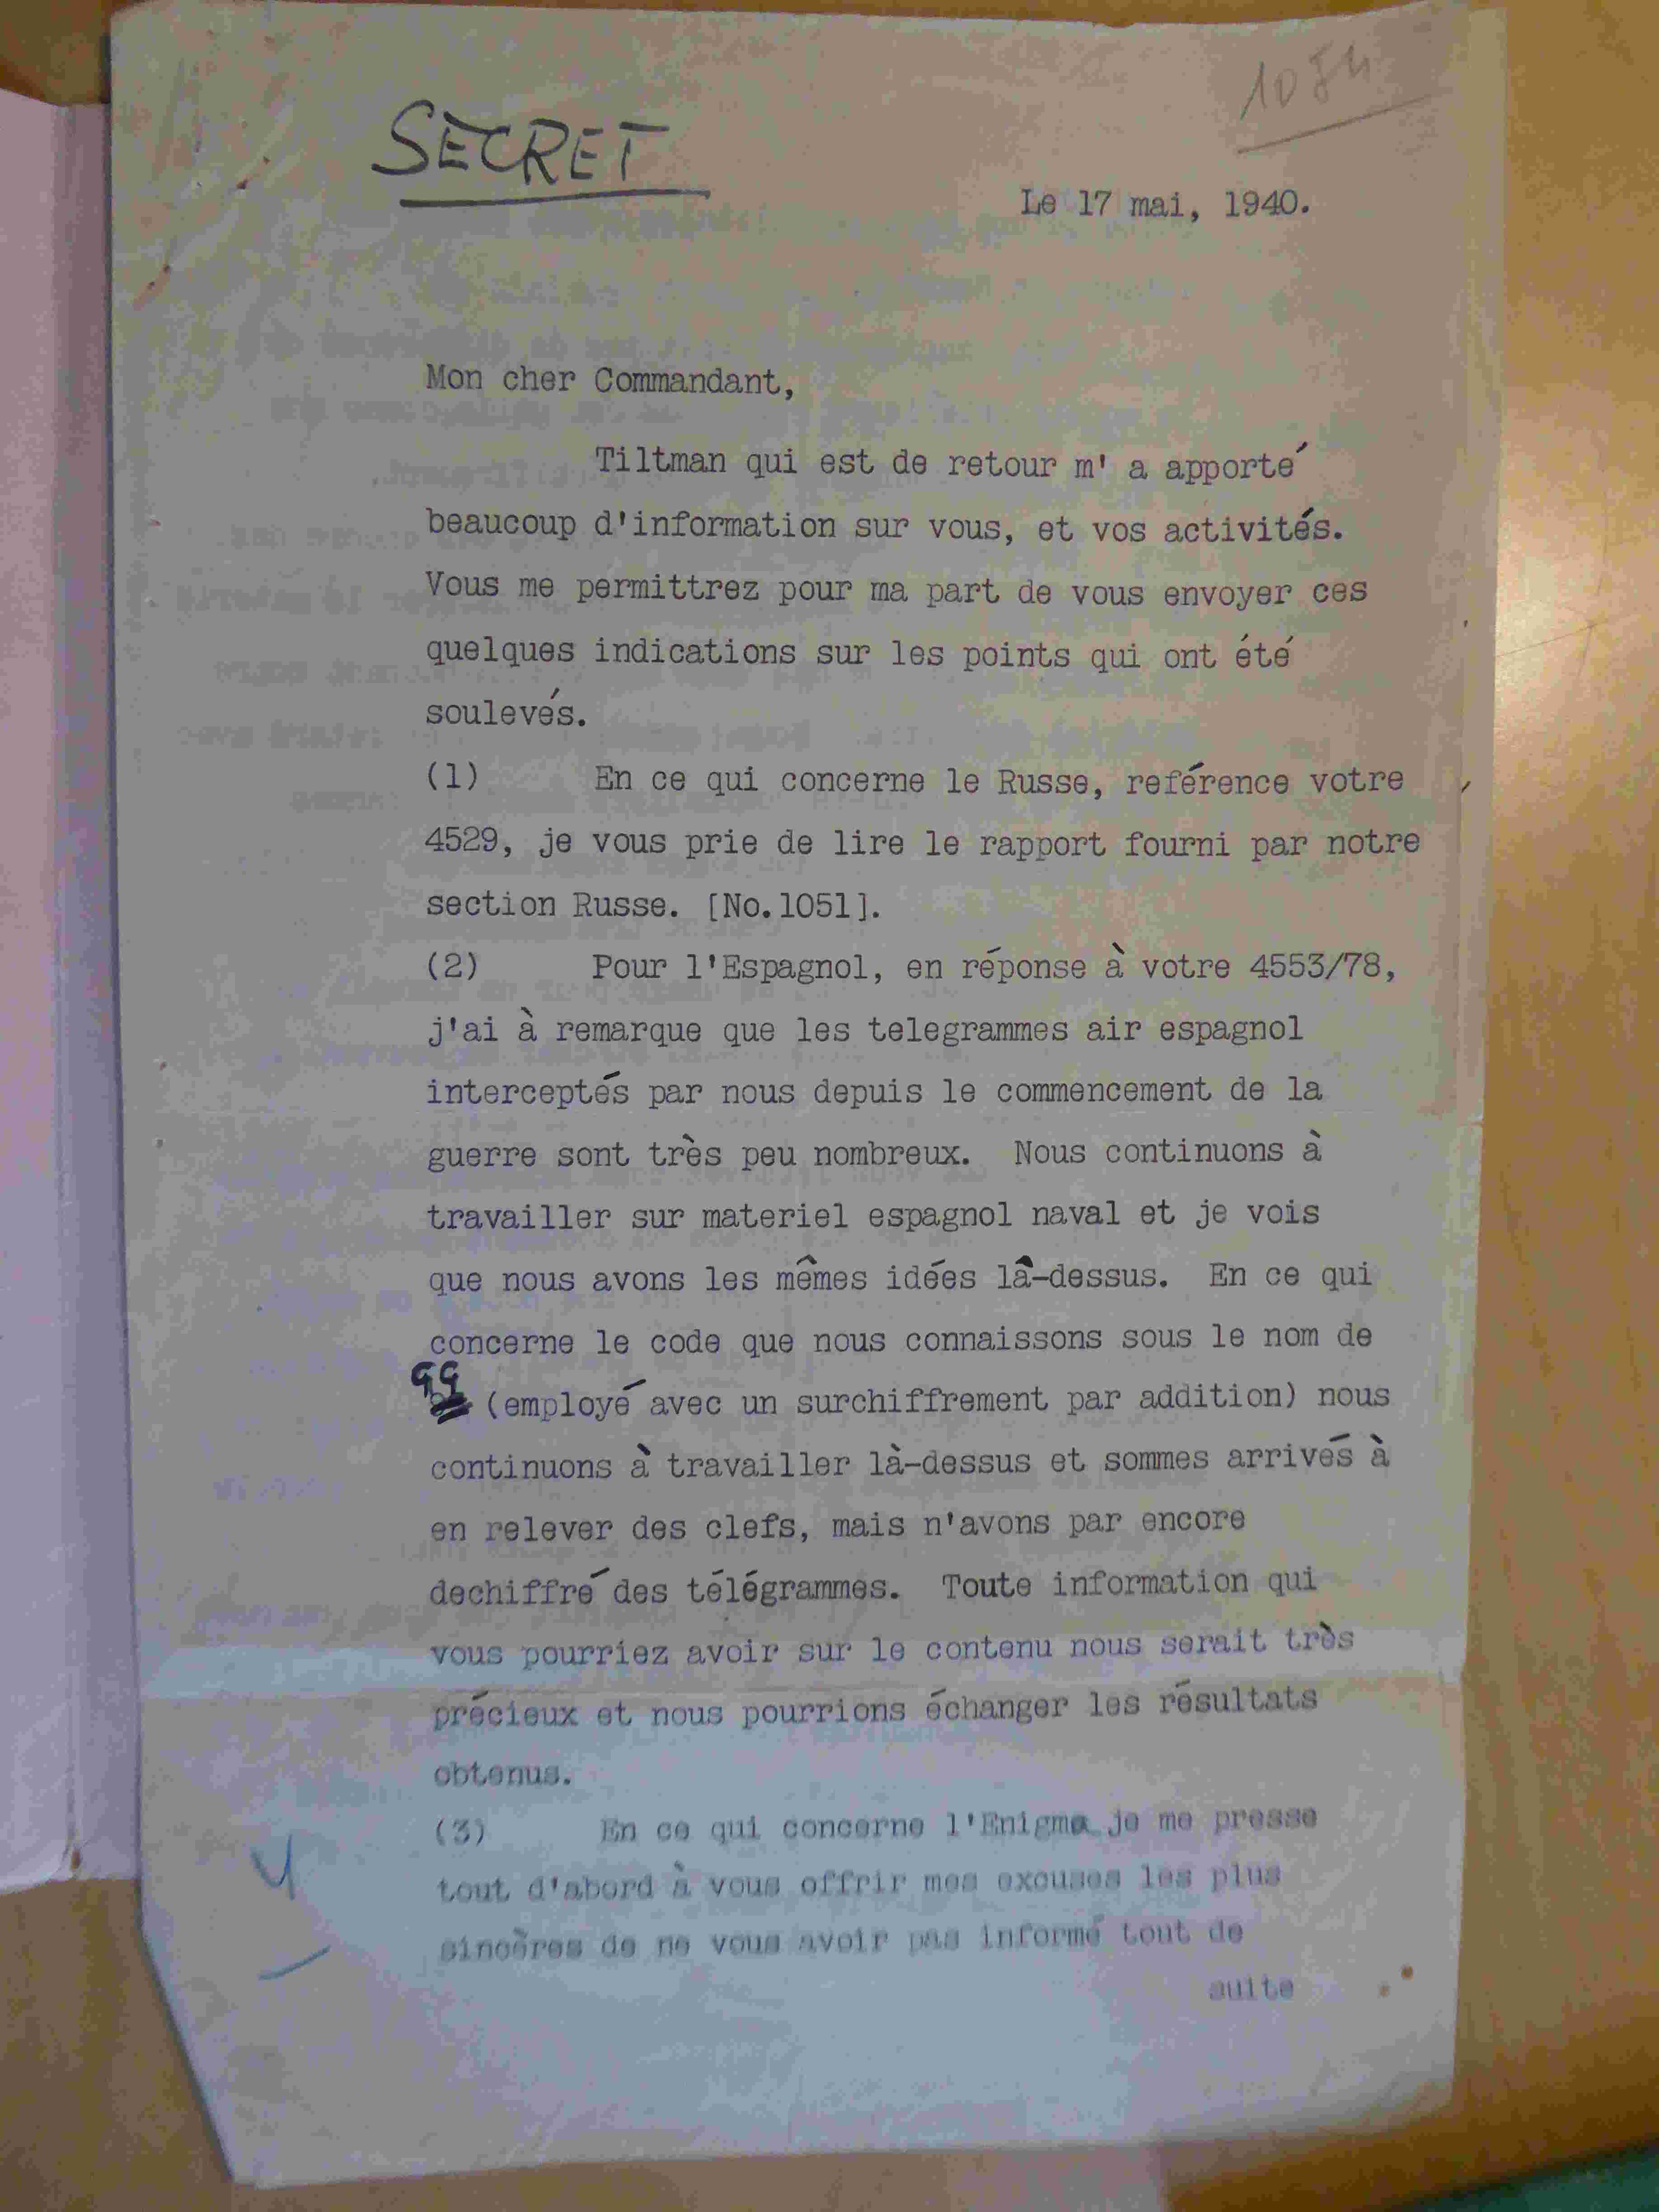 1084
SECRET
Le 17 mai, 1940.
Mon cher Commandant,
Tiltman qui est de retour m' a apporté
beaucoup d'information sur vous, et vos activités.
Vous me permittrez pour ma part de vous envoyer ces
quelques indications sur les points qui ont été
soulevés.
(1) En ce qui concerne le Russe, reférence votre
4529, je vous prie de lire le rapport fourni par notre
section Russe. [No.1051].
(2) Pour l'Espagnol, en réponse à votre 4553/78,
j'ai à remarque que les telegrammes air espagnol
interceptés par nous depuis le commencement de la
guerre sont très peu nombreux. Nous continuons à
travailler sur materiel espagnol naval et je vois
que nous avons les mêmes idées lâ-dessus. En ce qui
concerne le code que nous connaissons sous le nom de
99 (employé avec un surchiffrement par addition) nous
continuons à travailler là-dessus et sommes arrivés à
en relever des clefs, mais n'avons par encore
dechiffré des télégrammes. Toute information qui
vous pourriez avoir sur le contenu nous serait très
précieux et nous pourrions échanger les résultats
obtenus.
(3) En ce qui concerne l'Enigma je me presse
tout d'abord à vous offrir mes excuses les plus
sincères de ne vous avoir pas informé tout de
suite